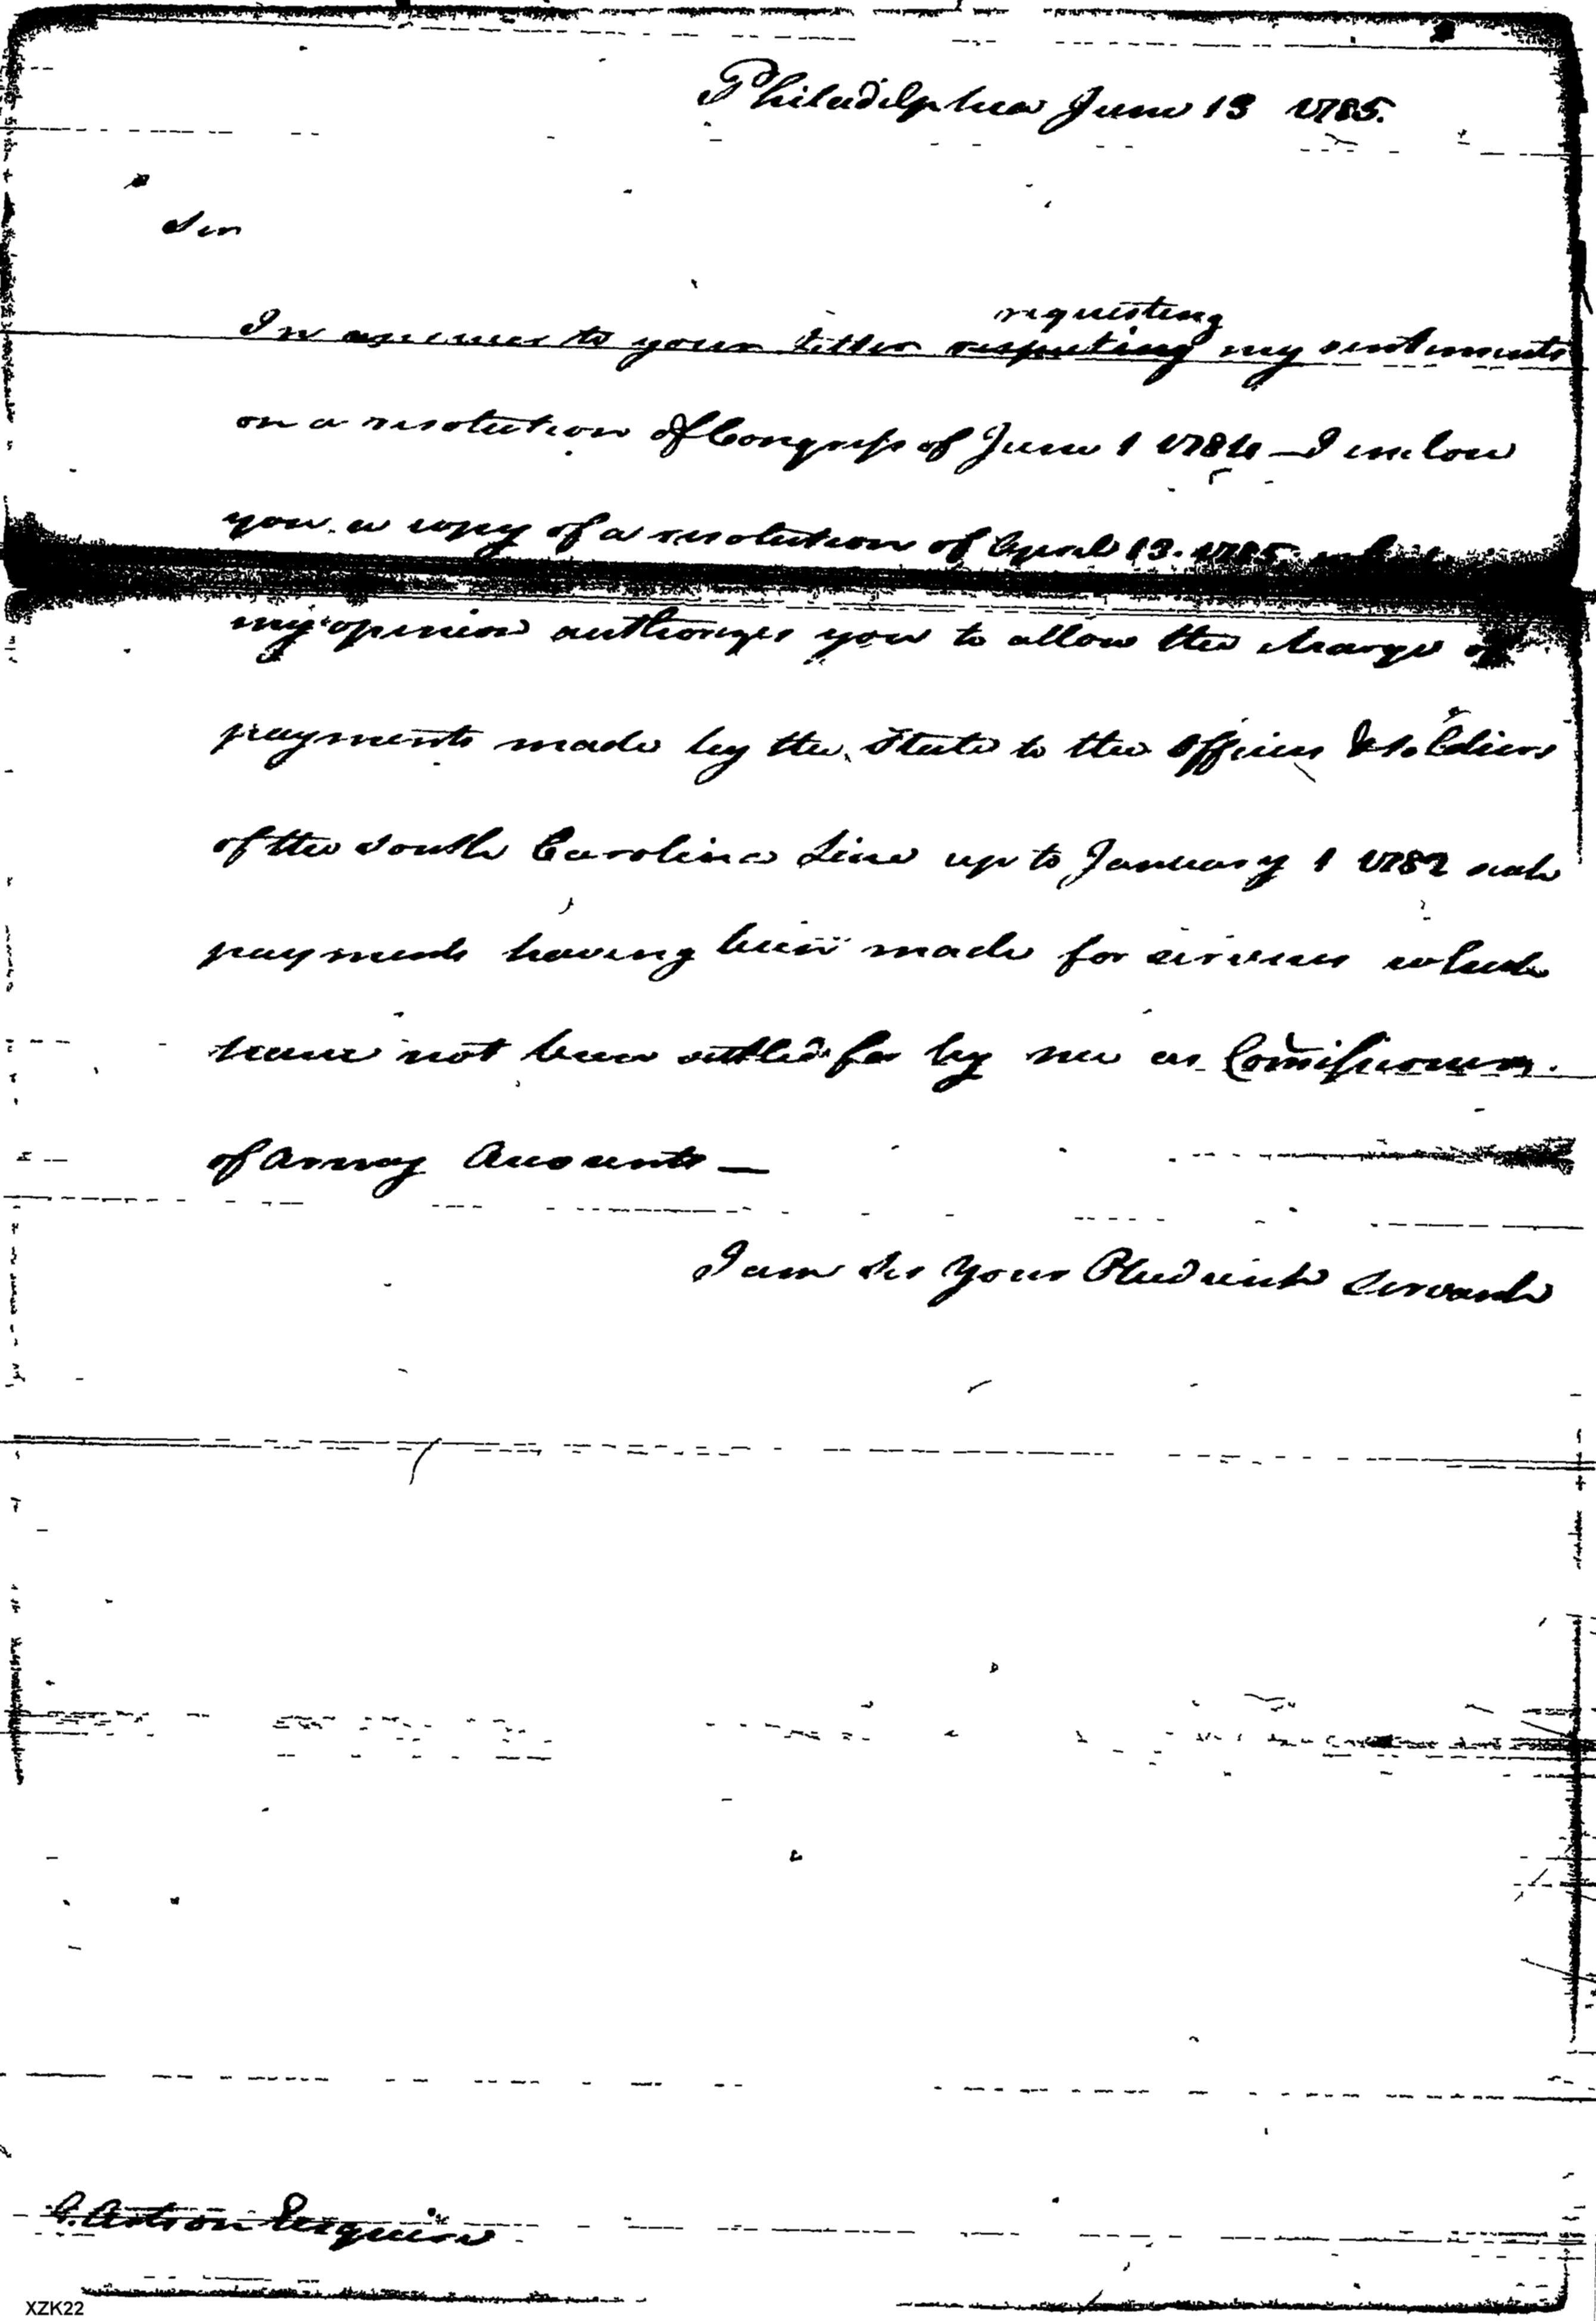 Philadelphia June 13 1785.
Sir
requesting
In answer to your letter respecting my sentiments
on a resolution of Congress of June 1 1784 — I inclose
you a copy of a resolution of April 13. 1785
my opinion authorizes you to allow the charge of
payments made by the State to the officers & soldiers
of the South Carolina Line up to January 1 1782 such
payments having been made for services which
have not been settled for by me as Comissioner
of Army Accounts —
I am Sir Your Obedient Servant
Esquire
XZK22